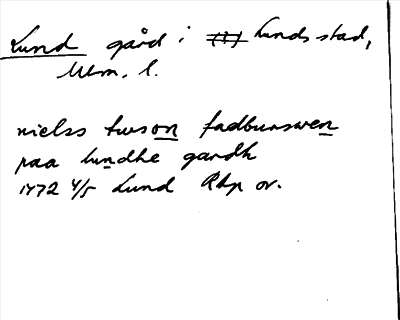 Lund gård i Lunds stad,
Mlm. l.
nielss twson fadburswen
paa lundhe gardh
1472 4/5 Lund Rhp or.